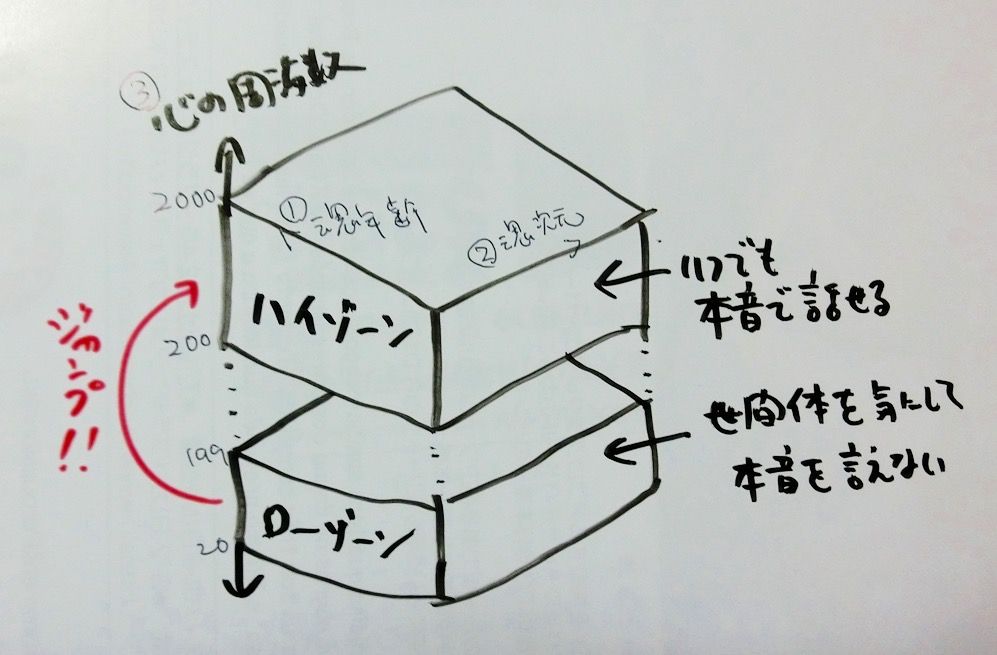 ③心の周波数
2000
①魂年齢
②魂次元
ハイゾーン
いつでも
本音で話せる
200
ジャンプ!!
199
ローゾーン
世間体を気にして
本音を言えない
20